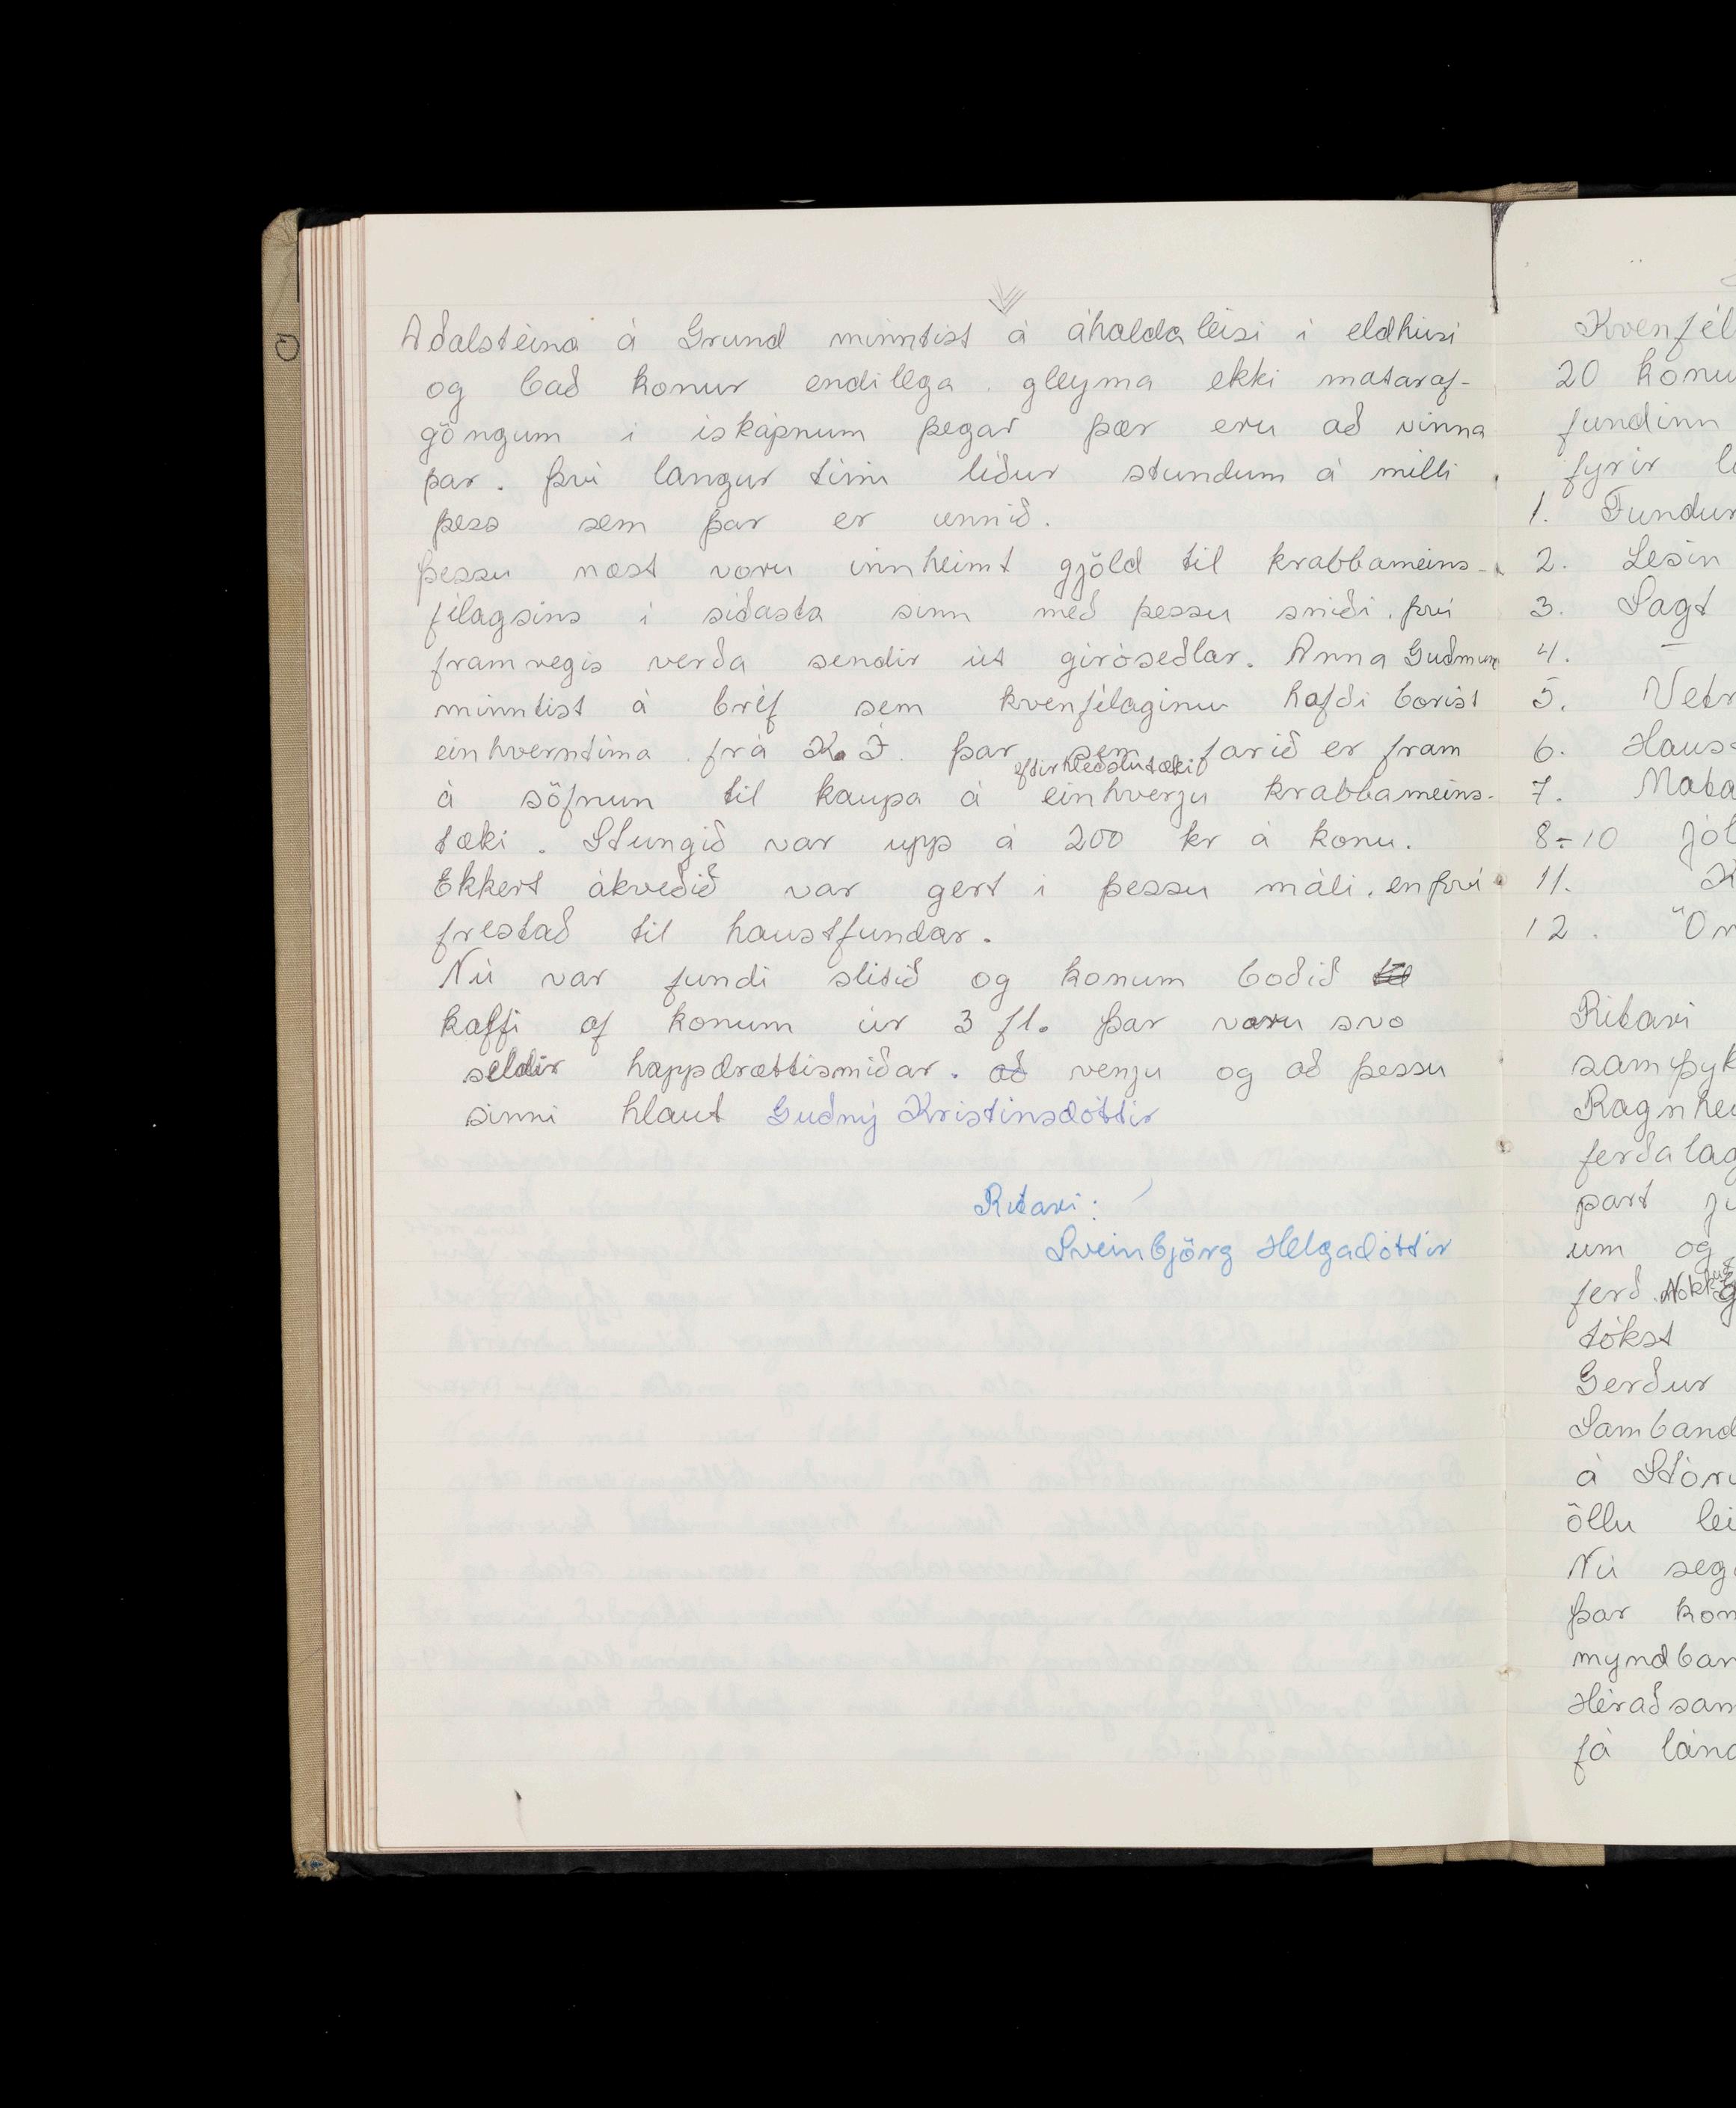 Aðalsteina á Grund minntist á áhaldaleisi í eldhúsi
og bað konur endilega gleyma ekki mataraf-
göngum í ískápnum þegar þær eru að vinna
þar. því langur tími líður stundum á milli
þess sem þar er unnið.
þessu næst voru innheimt gjöld til krabbameins-
félagsins í síðasta sinn með þessu sniði. því
framvegis verða sendir út gíróseðlar. Anna Guðmun
minntist á bréf sem kvenfélaginu hafði borist
einhverntíma frá K.Í. þar sem farið er fram
eftirhleðslutæki
á söfnun til kaupa á einhverju krabbameins-
tæki. Stungið var upp á 200 kr á konu.
Ekkert ákveðið var gert í þessu máli. en því
frestað til haustfundar.
Nú var fundi slitið og konum boðið til
kaffi af konum úr 3 fl. þar voru svo
seldir happdrættismiðar. að venju og að þessu
sinni hlaut Guðný Kristinsdóttir
Ritari:
Sveinbjörg Helgadóttir
Kvenfél
20 konu
fundinn
fyrir
1. Fundur
2. Lesin
3. Sagt
4. —
5. Vetr
6. Haus
7. Mata
8-10 Jól
11. K
12. "Ön
Ritari
samþyk
Ragnhei
ferðalag
part
um og
ferð. Nokkuð
tókst
Gerður
Samband
á Stóru
öllu lei
Nú seg
þar kom
myndban
Héraðsam
fá lána